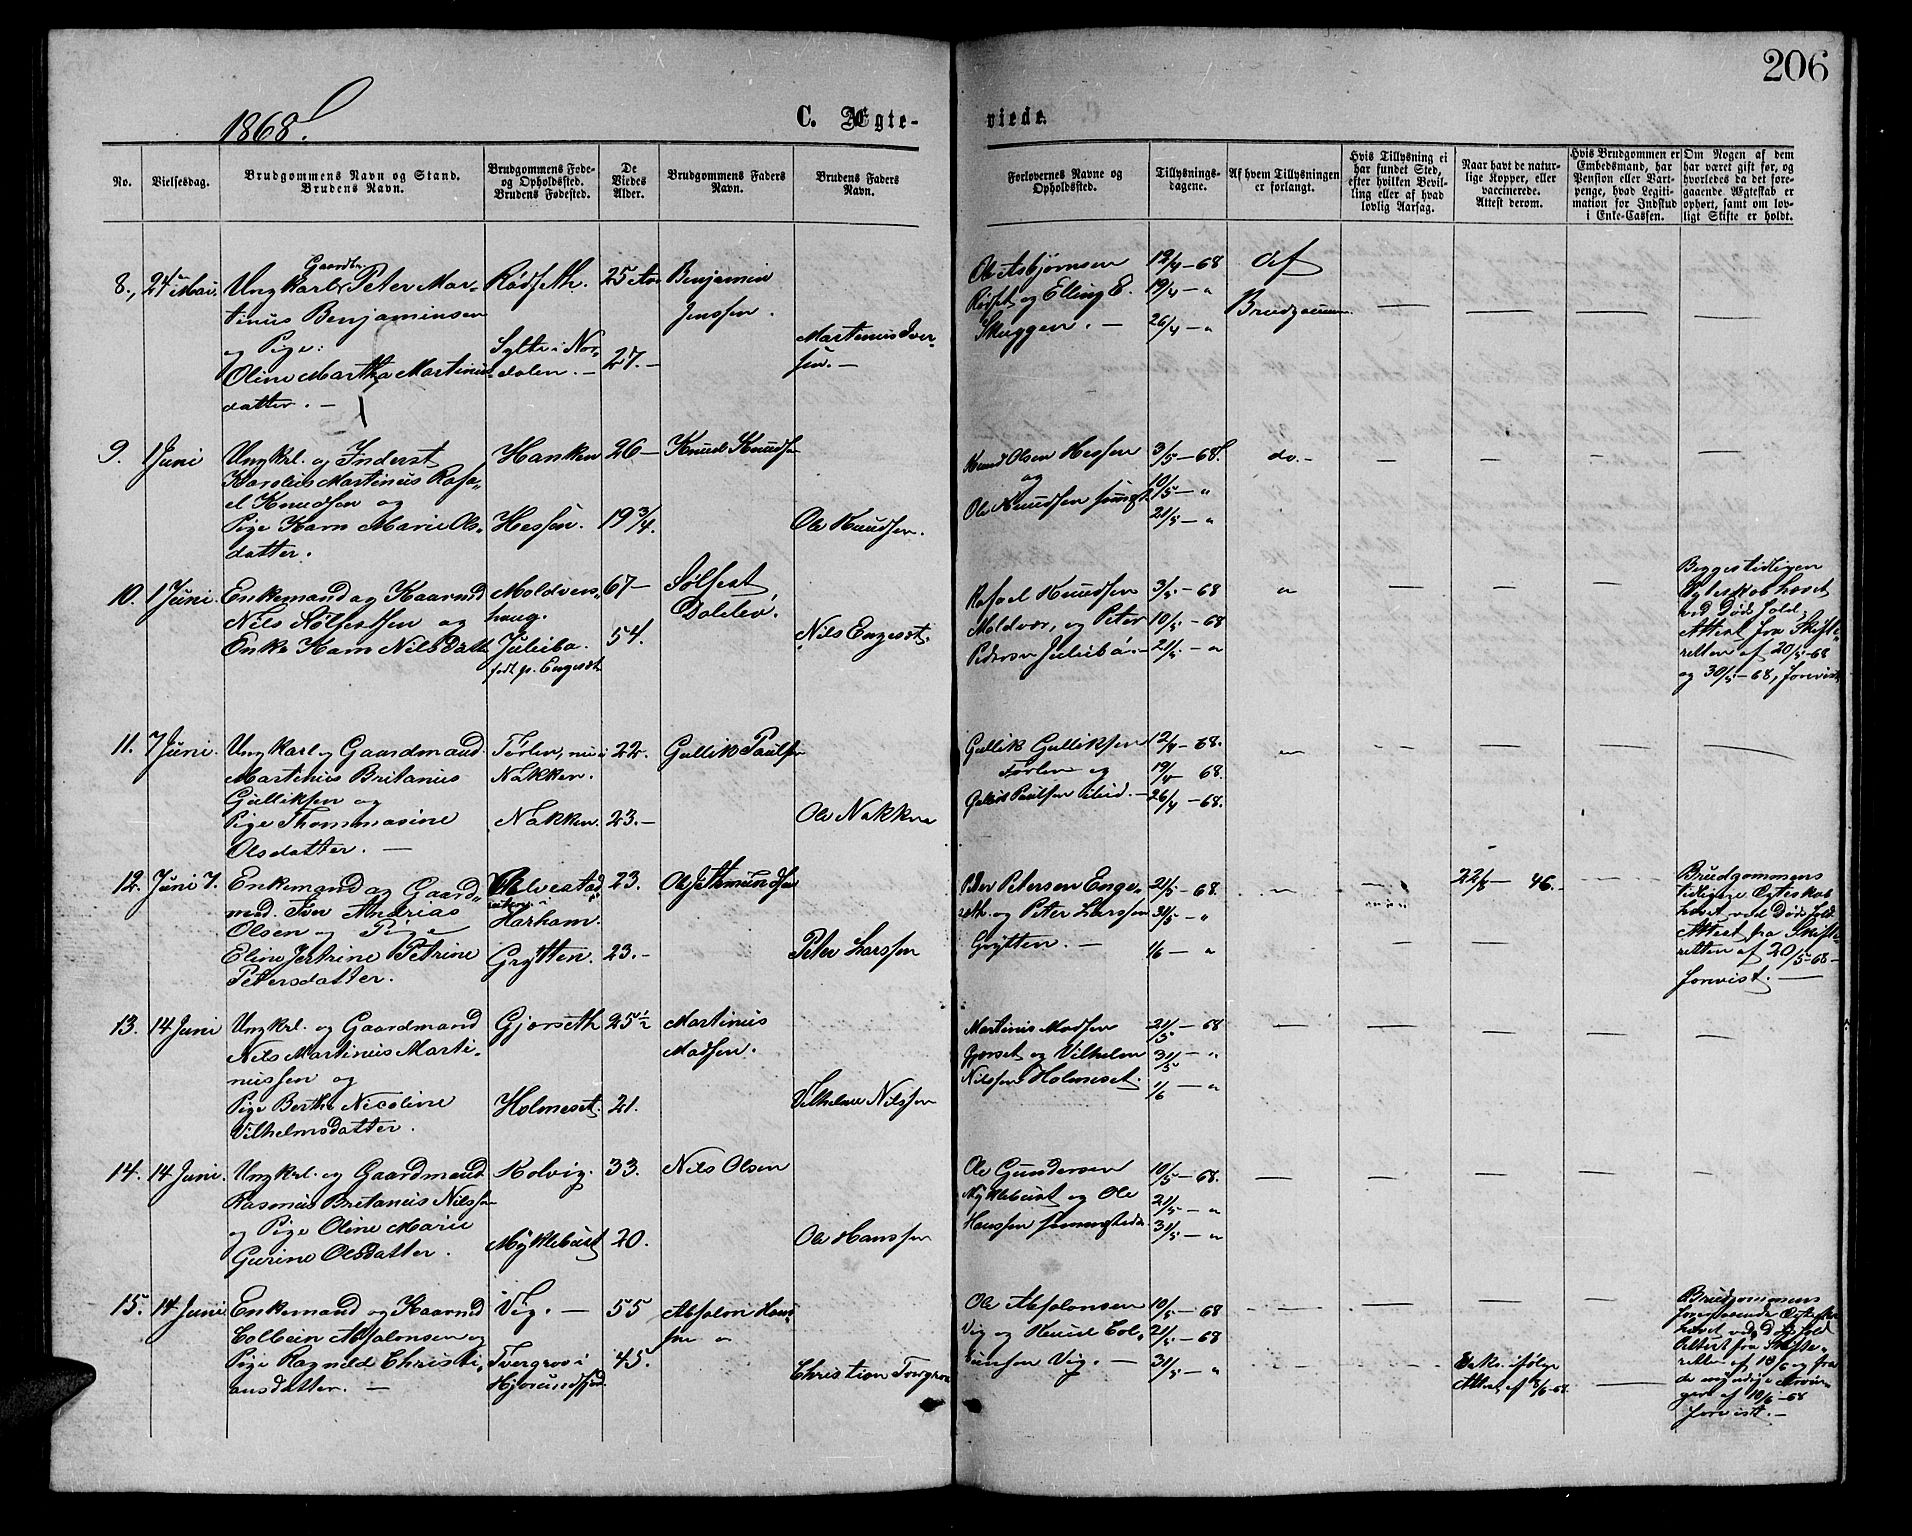 206
1868.
C. Ægte-
viede.
No.
Vielsesdag.
Brudgommens Navn og Stand.
Brudens Navn.
Brudgommens Føde-
og Opholdssted.
Brudens Fødested.
De
Viedes
Alder.
Brudgommens Faders
Navn.
Brudens Faders
Navn.
Forlovernes Navne og
Opholdssted.
Tillysnings-
dagene.
Af hvem Tillysningen
er forlangt.
Hvis Tillysning ei
har fundet Sted,
efter hvilken Bevil-
ling eller af hvad
lovlig Aarsag.
Naar havt de natur-
lige Kopper, eller
vaccinerede.
Attest derom.
Hvis Brudgommen er
Embedsmand, har
Pension eller Vart-
penge, hvad Legiti-
mation for Indskud
i Enke-Cassen.
Om Nogen af dem
har været gift før, og
hvorledes da det fore-
gaaende Ægteskab er
ophørt, samt om lov-
ligt Skifte er holdt.
8., 24de Mai.
Gaardbr.
Ungkarl Peter Mar-
tinus Benjaminsen
og Pige:
Oline Martha Martinus-
datter. —
Rødseth.
Sylte i Nor-
dalen. —
25 Aar
27. —
Benjamin
Jenssen.
Martinus Iver-
sen. —
Ole Asbjørnsen
Rødset og Elling E.
Skuggen. —
12/4 — 68
19/4 — "
26/4 — "
Af
Brudgommen.
9. 1 Juni
Ungkrl. og Inderst
Karolus Martinus Rafa-
el Knudsen og
Pige Karn Marie Ols-
datter.
Hanken
Hessen.
26 —
19 3/4.
Knud Knudsen
Ole Knudsen.
Knud Olsen Hessen
og
Ole Knudsen
3/5 — 68.
10/5 — "
21/5 — "
do. —
10. 1 Juni.
Enkemand og Kaarmd
Nils Sølfestsen og
Enke Karn Nilsdatt
Moldvers-
haug.
Juleibø.
født p. Engeset
67 —
54.
Sølfest
Dalebø.
Nils Engeset.
Rafael Knudsen
Moldvær, og Peter
Pedersen Juleibø. —
3/5 — 68
10/5 — 68
21/5 — "
"
Begges tidligere
Egteskab hævet
ved Døds fald;
Attest fra Skifte-
retten af 20/5 — 68
og 30/5 — 68, forevist
11. 7 Juni.
Ungkarl og Gaardmand
Martinus Britanius
Gulliksen og
Pige Thommasine
Olsdatter. —
Tørlen, nu i
Nakken.
Nakken.
22.
23. —
Gullik Paulsen
Ole Nakken
Gullik Gulliksen
Tørlen og
Gullik Paulsen ibid. —
12/4 — 68.
19/4 — 68.
26/4 — 68.
"
12. Juni 7.
Enkemand og Gaard-
md. Iver Andreas
Olsen og Pige
Eline Jertrine Petrine
Petersdatter.
Harham.
Grytten.
23.
23. —
Peter Larssen
Peder Petersen Enge-
seth. og Peter Larssen
Grytten. —
21/5 — 68.
31/5 — "
1/6 — "
22/8 — 46. —
Brudgommens
tidligere Egteskab
hævet ved Døds fald.
Attest fra Skifte-
retten af 20/5-68 —
forevist. —
13. 14 Juni
Ungkrl. og Gaardmand
Nils Martinus Marti-
nussen og
Pige Berthe Nicoline
Vilhelmsdatter.
Gjørseth
Holmeset.
25 1/2
21.
Martinus
Madsen.
Vilhelm Nilssen
Martinus Madsen
Gjørset og Vilhelm
Nilssen Holmeset.
21/5 — 68
31/5 — "
1/6 — "
14. 14 Juni.
Ungkrl. og Gaardmand
Rasmus Britanius Nilssen
og Pige Oline Marie
Gurine Olsdatter.
Kolvig.
Myklebust
33.
20.
Nils Olsen
Ole Hanssen
Ole Gundersen
Myklebust og Ole
Hanssen sammesteds
10/5 — 68.
21/5 — "
31/5 — "
15. 14 Juni
Enkemand og Kaarmd
Colbein Absalonsen og
Pige Ragnild Christi-
ansdatter. —
Vig. —
Tvergrov i
Hjørundfjord
55
45.
Absalon Hans-
sen "
Christian Tvergrov
Ole Absalonsen
Vig og Knud Col-
beinsen Vig. —
10/5 — 68
21/5 — 68
31/5 — "
Enke. ifølge
Attest af 8/6-68.
Brudgommens
foregaaende Egteskab
hævet ved Døds fald
Attest fra Skifte-
retten af 18/5 og fra
de myndige Arvin-
ger af 10/6 — 68
forevist. —